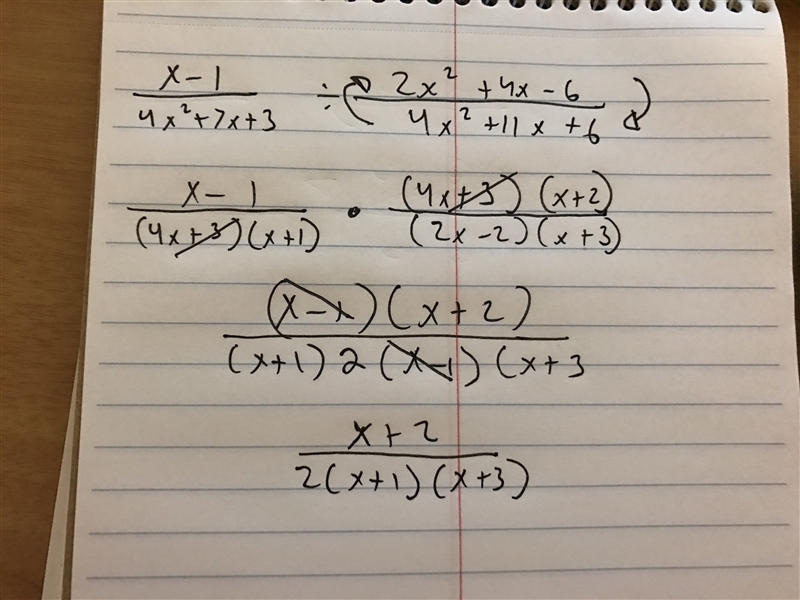 x-1 / 4x²+7x+3 ÷ 2x²+4x-6 / 4x²+11x+6
x-1 / (4x+3)(x+1) • (4x+3)(x+2) / (2x-2)(x+3)
(x-1)(x+2) / (x+1)2(x-1)(x+3
x+2 / 2(x+1)(x+3)